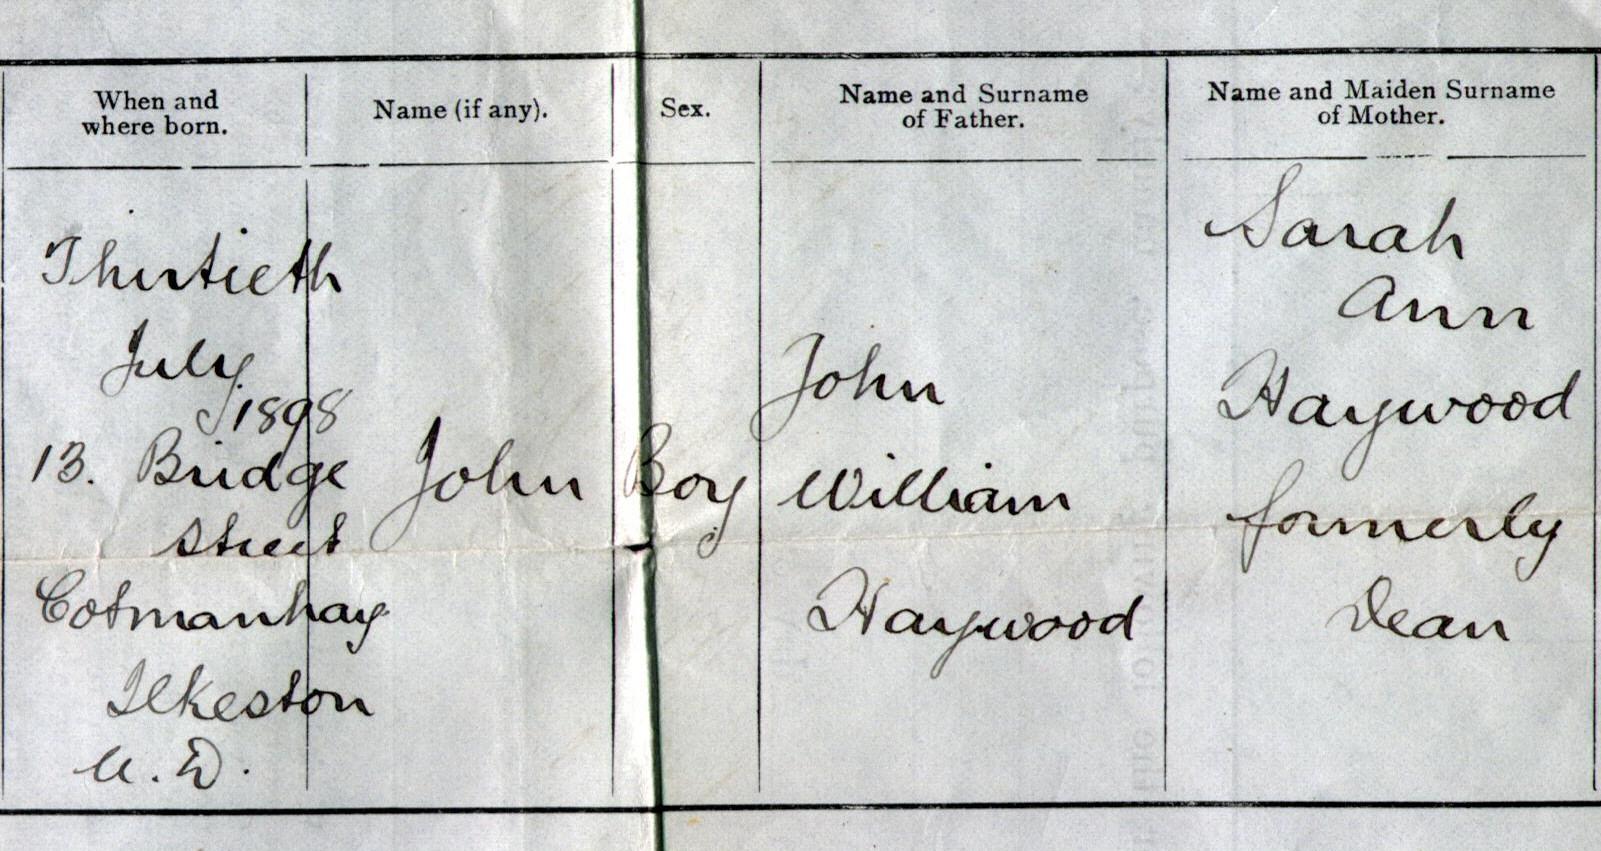 When and
where born.
Name (if any).
Sex.
Name and Surname
of Father.
Name and Maiden Surname
of Mother.
Thirtieth
July
1898
13. Bridge
Street
Cotmanhay
Ilkeston
U.D.
John
Boy
John
William
Haywood
Sarah
Ann
Haywood
formerly
Dean